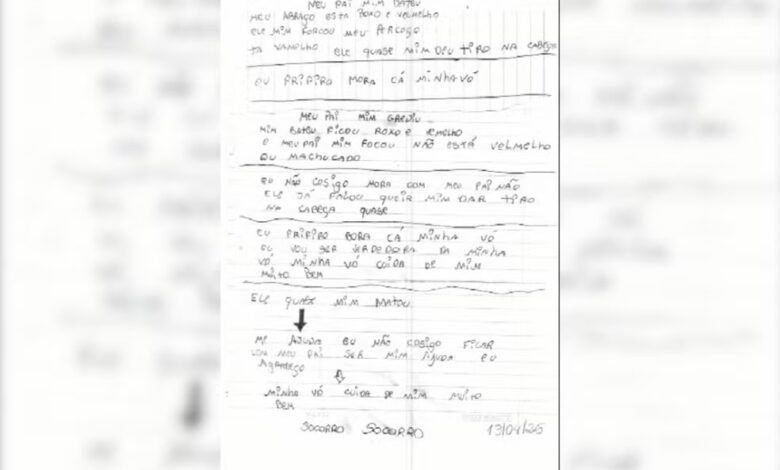 MEU PAI MIM BATEU
MEU ABRAÇO ESTA ROXO E VELMELHO
ELE MIM FORCOU MEU PERCOÇO
TA VAMELHO ELE QUASE MIM DEU TIRO NA CABEÇA
EU PRIFIRO MORA CÁ MINHA VÓ
MEU PAI MIM GREDIU
MIM BATEU FICOU ROXO E VEMELHO
O MEU PAI MIM FOCOU NÃO ESTÁ VELMELHO
OU MACHUCADO
EU NÃO COSIGO MORA COM MEU PAI NÃO
ELE JÁ FALOU QUEIR MIM DAR TIRO
NA CABEÇA QUASE
EU PRIFIRO BORA CÁ MINHA VÓ
EU VOU SER DA MINHA
VÓ MINHA VÓ CUIDA DE MIM
MUITO BEM
ELE QUASE MIM MATOU
ME AJUDA EU NÃO COSIGO FICAR
COM MEU PAI SER MIM AJUDA EU
AGRADEÇO
MINHA VÓ CUIDA DE MIM MUITO
BEM
SOCORRO SOCORRO 13/04/26